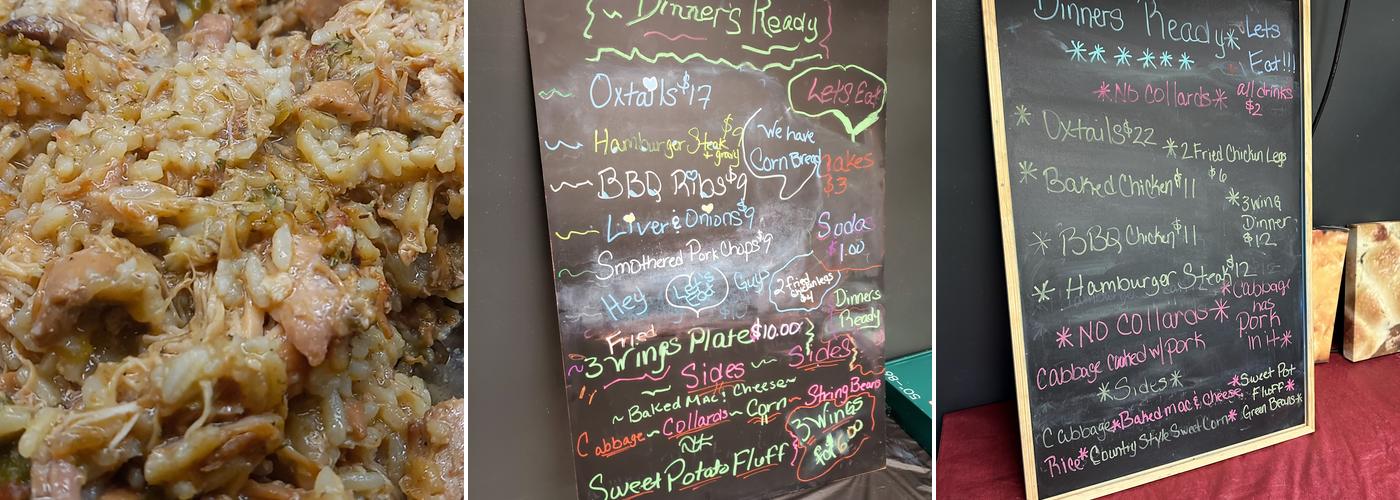 Dinner's Ready
Oxtails $17
Let's Eat
Hamburger Steak $9
+ gravy
We have
Corn Bread
BBQ Ribs $9
$3
Liver & Onions $9
Soda
$1.00
Smothered Pork Chops $9
Hey Let's Guys
2 fried
$4
Dinners
Ready
Fried
3 Wings Plate $10.00
Sides
Sides
~ Baked Mac & Cheese ~
String Beans
Cabbage ~ Collards ~ Corn ~
3 Wings
for 6.00
Sweet Potato Fluff
Dinners Ready * Lets
Eat!!!
* * * * * *
* No Collards *
all drinks
$2
* Oxtails $22
* 2 Fried Chicken Legs
$6
* Baked Chicken $11
* 3 wing
Dinner
$12
* BBQ Chicken $11
* Hamburger Steak $12
* NO Collards *
* Cabbage
has
Pork
in it *
Cabbage cooked w/ pork
* Sides *
* Sweet Pot
Fluff *
Cabbage * Baked mac & cheese
* Green Beans *
Rice * Country Style Sweet Corn *